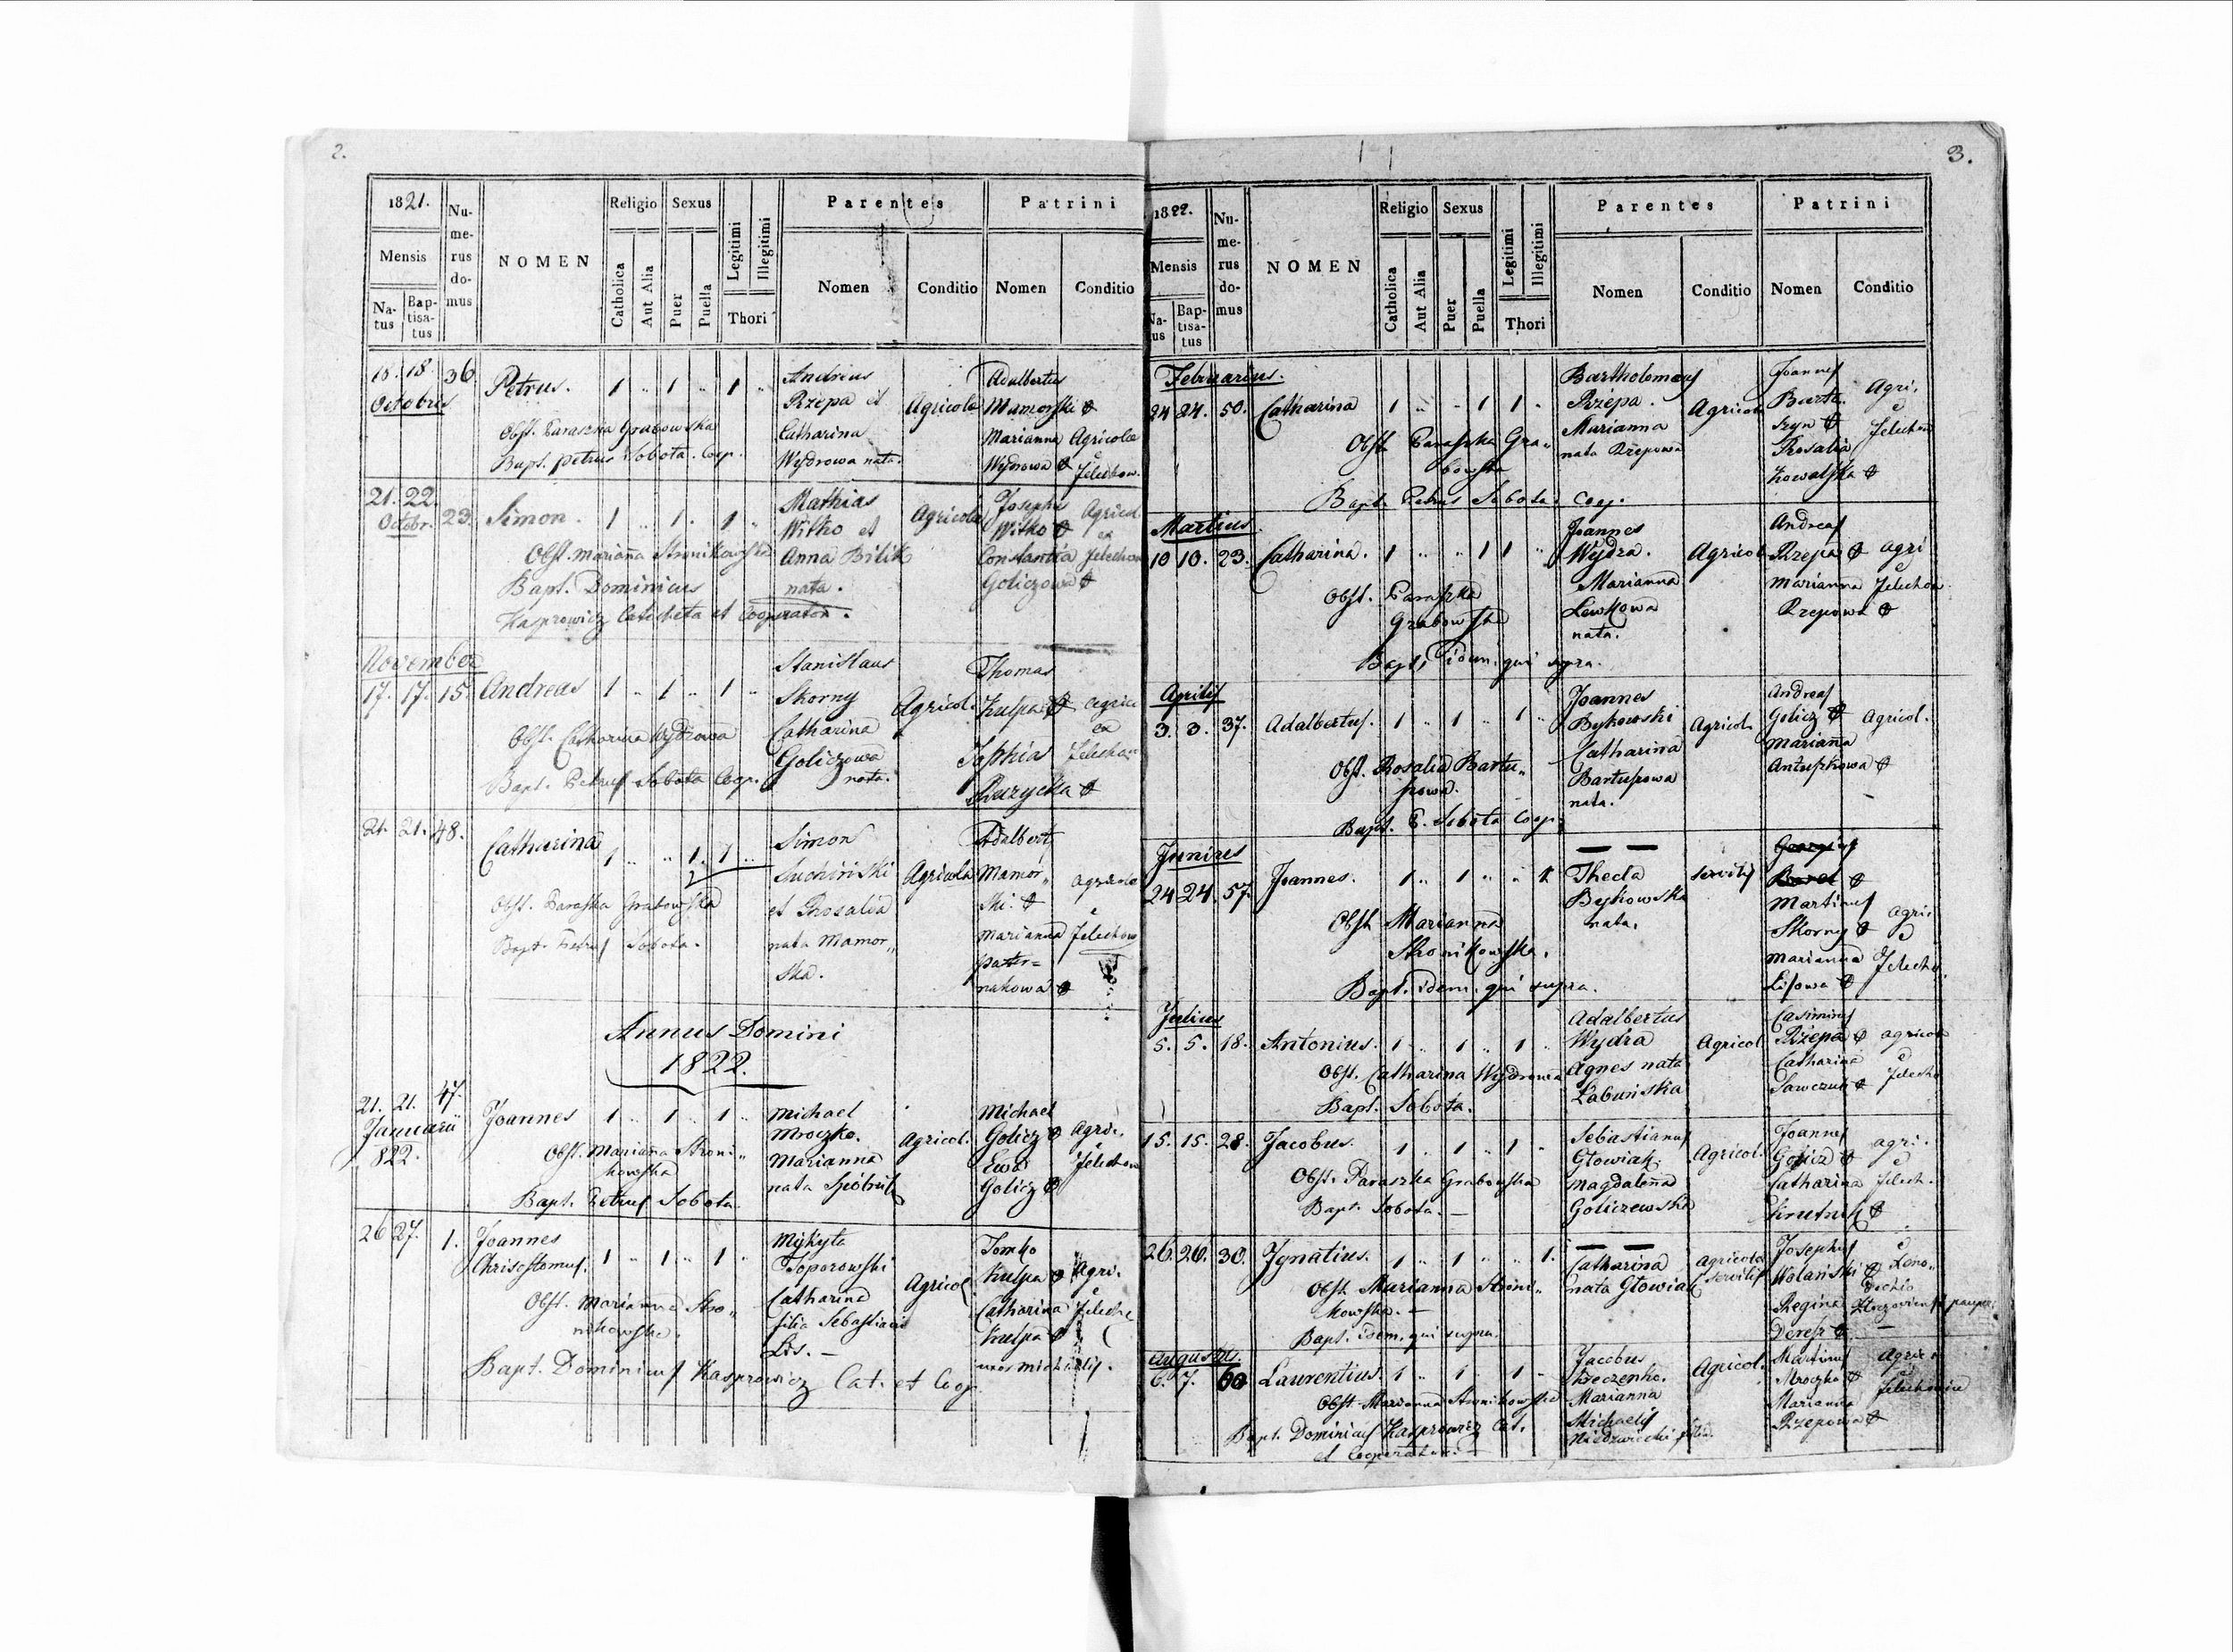 2.
1821.
Mensis
Na-
tus
Bap-
tisa-
tus
Nu-
me-
rus
do-
mus
NOMEN
Religio
Catholica
Aut Alia
Sexus
Puer
Puella
Legitimi
Illegitimi
Thori
Parentes
Nomen
Conditio
Patrini
Nomen
Conditio
18. 18. 36.
Octobris
Petrus. 1 " 1 " 1 "
Obst. Paraszka Grabowska
Bapt. Petrus Sobota. Coop.
Andreas
Rzepa et
Catharina
Wydrowa nata.
Agricola
Adalbertus
Mamorski
Marianna Agricolae
Wydrowa
Jelechow.
21. 22. 23.
Octobr.
Simon. 1 " 1 . 1 "
Obst. Marianna Stronikowska
Bapt. Dominicus
Kasprowicz Catecheta et Cooperator.
Mathias
Witko et
Anna Bilik
nata.
Agricola
Josephus Agricol.
Witko ex
Constantia
Goliczowa
November
17. 17. 15. Andreas 1 " 1 " 1 "
Obst. Catharina Wydrowa
Bapt. Petrus Sobota Coop.
Stanislaus
Skorny
Catharina
Goliczowa
nata.
Agricol.
Thomas
Kulpa
ex
Sophia
Ruzycka
21. 21. 48.
Catharina 1 " " 1. 1 "
Obst. Paraska Grabowska
Bapt. Petrus Sobota.
Simon
Suchinski
et Rosalia
nata Mamor„
ska.
Agricola
Adalbert
Mamor„
ski.
Marianna Jelechow
Paster=
nakowa
Annus Domini
1822.
21. 21. 47.
Januarii
822.
Joannes 1 " 1 " 1 "
Obst. Marianna Stroni„
kowska
Bapt. Petrus Sobota
Michael
Mroczko.
Marianna
nata
Agricol.
Michael
Golicz Agri.
Ewa
Golicz
26 27. 1. Joannes
Chrisostomus. 1 " 1 " 1 "
Obst. Marianna Stro„
nikowska.
Bapt. Dominicus Kasprowicz Cat. et Coop.
Mykyta
Toporowski
Catharina
filia Sebastiani
Lis. —
Agricol
Tomko
Kulpa Agri.
Catharina
Kulpa
uxor Michaelis.
3.
1822.
Mensis
Na-
tus
Bap-
tisa-
tus
Nu-
me-
rus
do-
mus
NOMEN
Religio
Catholica
Aut Alia
Sexus
Puer
Puella
Legitimi
Illegitimi
Thori
Parentes
Nomen
Conditio
Patrini
Nomen
Conditio
Februarius.
24 24. 50. Catharina 1 " " 1 1 "
Obst. Paraszka Gra„
bowska
Bapt. Petrus Sobota. Coop.
Bartholomeus
Rzepa.
Marianna
nata Rzepowa
Agricola
Joannes
Agri.
Rosalia
Kowalska
Martius.
10 10. 23. Catharina. 1 " " 1 1 "
Obst. Paraszka
Grabowska
Bapt. idem. qui supra.
Joannes
Wydra.
Marianna
Lewkowa
nata.
Agricol
Andreas
Rzepa agri
Marianna Jelechow
Rzepowa
Aprilis
3. 3. 37. Adalbertus. 1 " 1 " 1 "
Obst. Rosalia Bartu„
Bapt. P. Sobota Coop.
Joannes
Bykowski
Catharina
nata.
Agricol.
Andreas
Golicz Agricol.
Marianna
Antuszkowa
Junius
24 24. 57. Joannes. 1 " 1 " " 1.
Obst. Marianna
Stronikowska.
Bapt. idem. qui supra.
— —
Thecla
Bykowska
nata.
servilis
Martinus
Skorny
Marianna
Lisowa
Julius
5. 5. 18. Antonius. 1 " 1 " 1 "
Obst. Catharina Wydrowa
Bapt. Sobota.
Adalbertus
Wydra
Agnes nata
Łabuńska
Agricol
Casimirus
Rzepa agricol
Catharina
Sawczuk
15. 15. 28. Jacobus. 1 " 1 " 1 "
Obst. Paraszka Grabowska
Bapt. Sobota. —
Sebastianus
Głowiak
Magdalena
Goliczewska
Agricol.
Joannes
Golicz agri.
Catharina Jelech.
Krutnik
26. 26. 30. Ignatius. 1 " 1 " " 1.
Obst. Marianna Stroni„
kowska. —
Bapt. idem. qui supra.
— —
Catharina
nata Głowiak
Agricola
servilis
Josephus
Wolański
Regina
Augustus.
6. 7. 60 Laurentius. 1 " 1 " 1 "
Obst. Marianna Stronikowska
Bapt. Dominicus Kasprowicz Cat.
et Cooperator. —
Jacobus
Marianna
Michaelis
Agricol.
Martinus
Mroczko
Marianna
Rzepowa